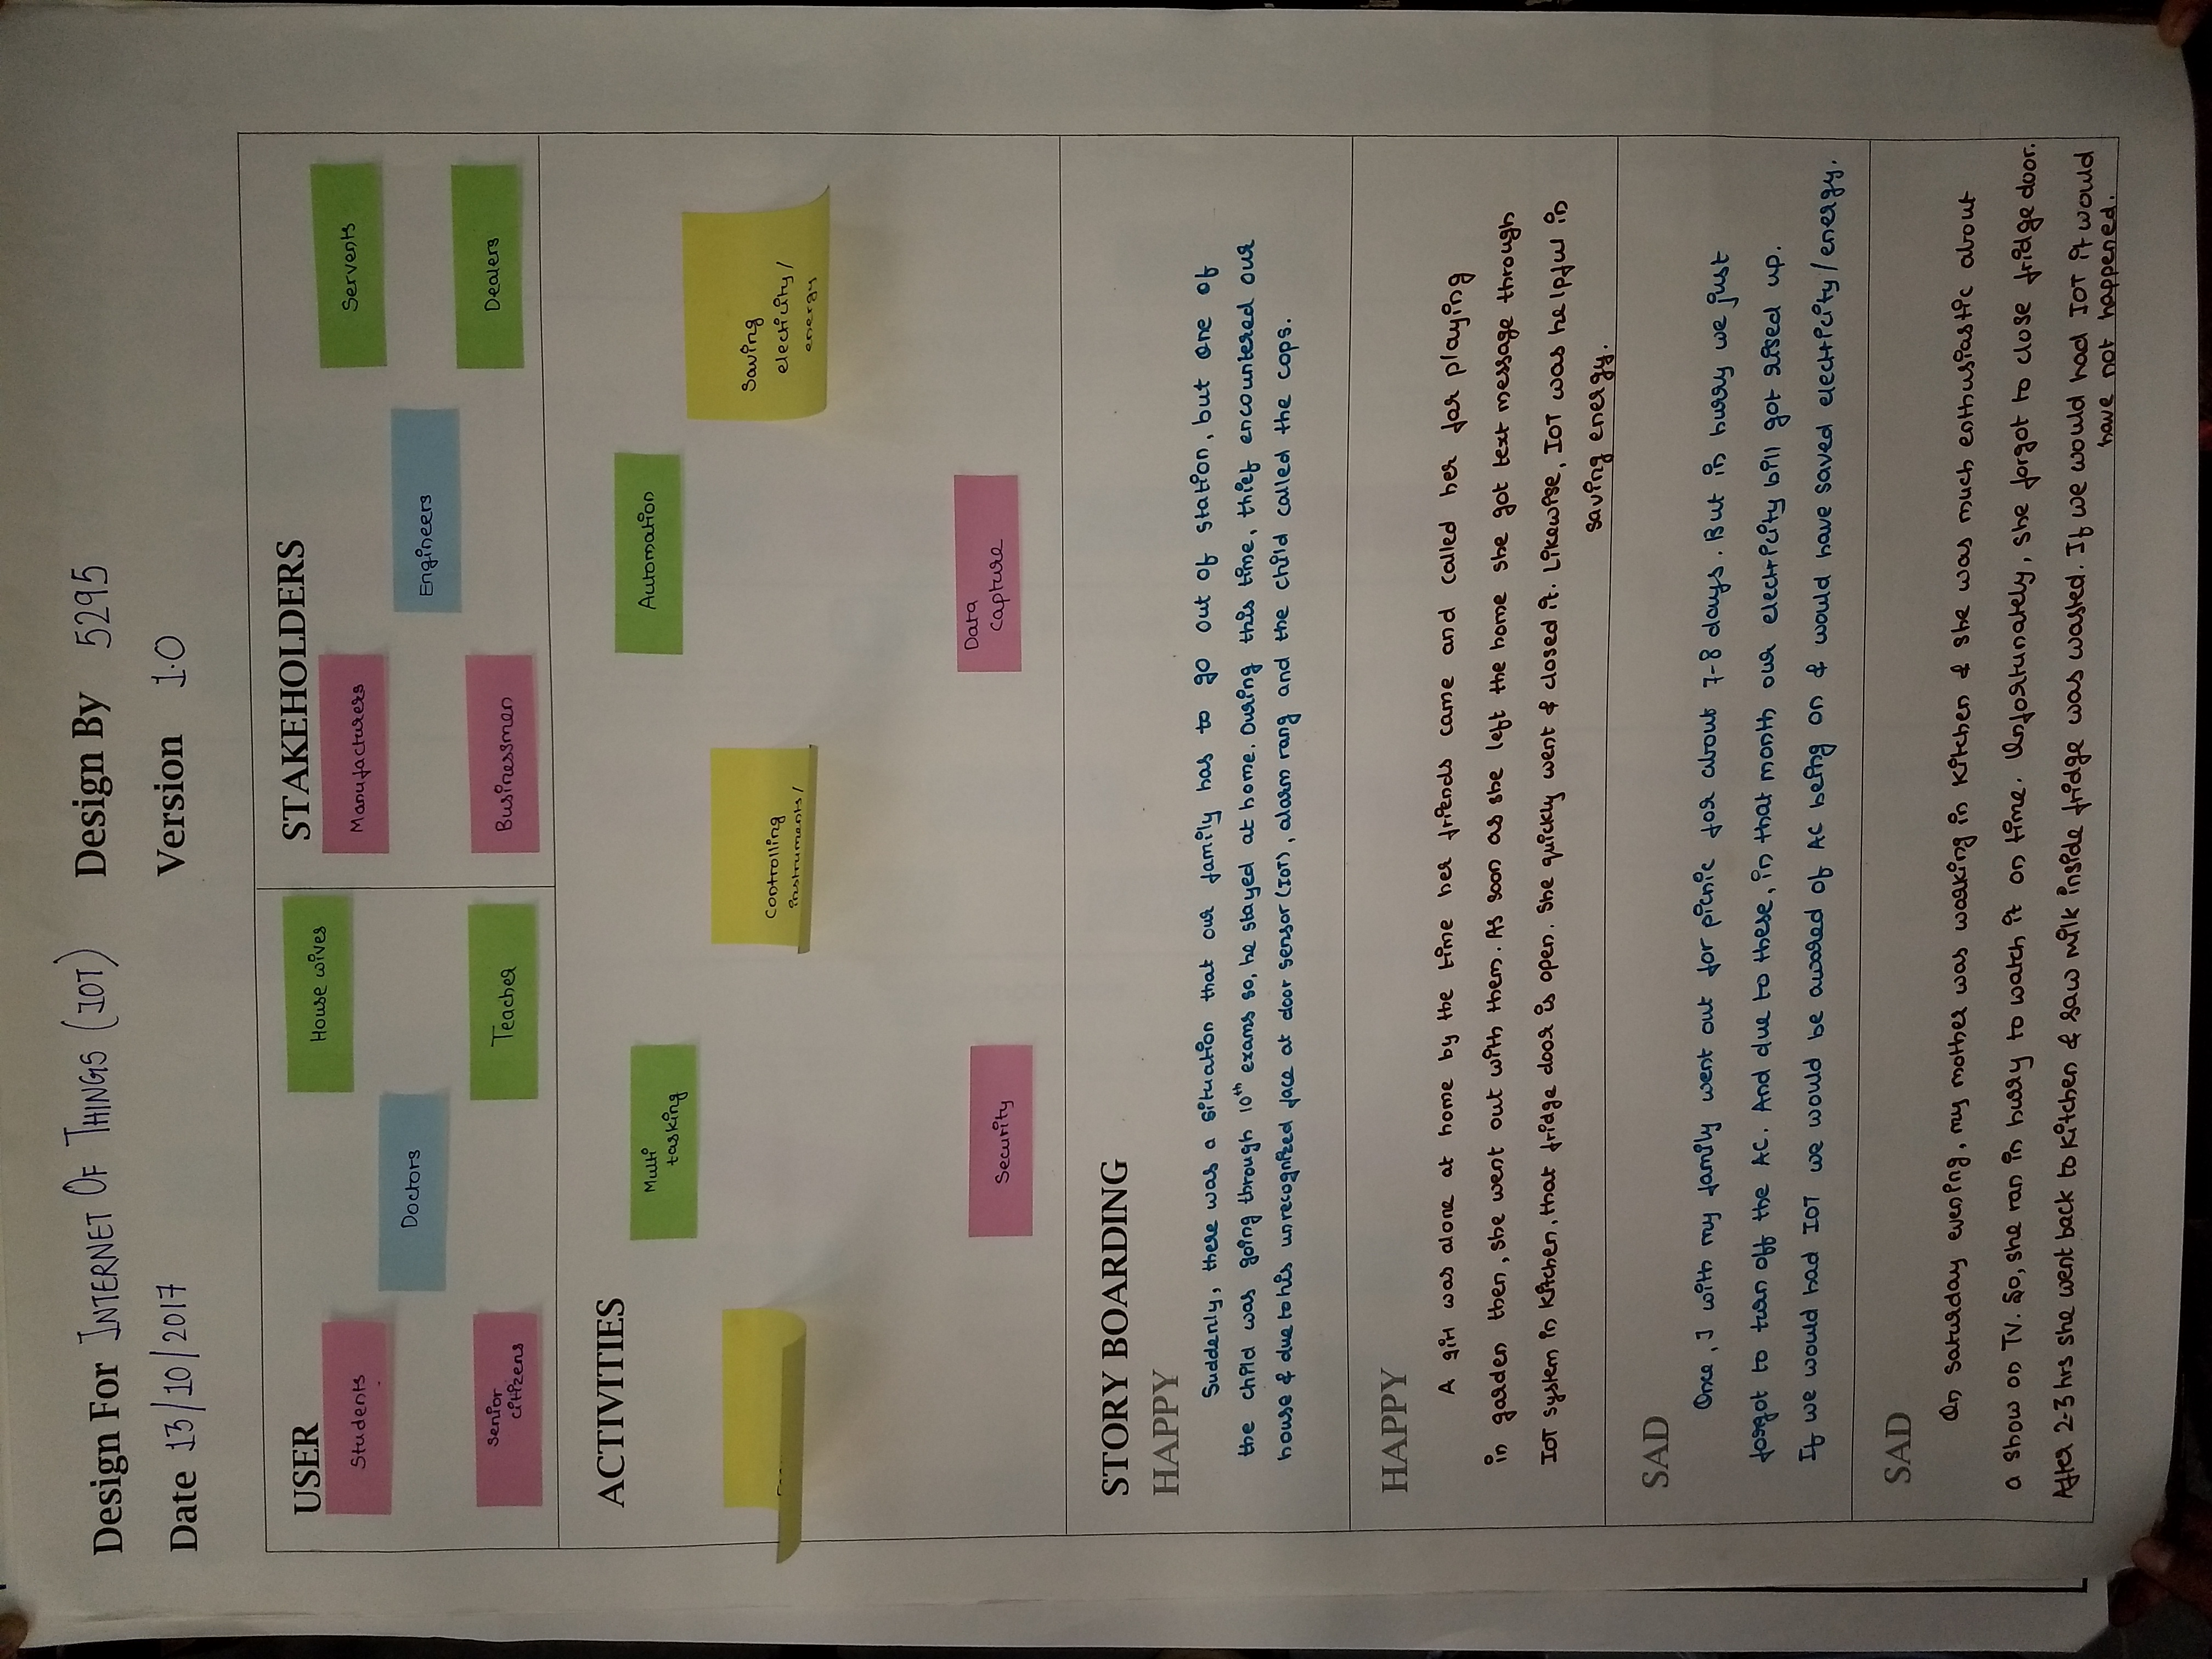 Design For INTERNET OF THINGS (IOT) Design By 5295
Date 13/10/2017 Version 1.0
USER
Students
House wives
Doctors
Senior citizens
Teacher
STAKEHOLDERS
Manufactures
Servents
Engineers
Businessmen
Dealers
ACTIVITIES
Multi
tasking
Automation
Controlling
instruments/
Saving
electicity/
energy
Security
Data
Capture
STORY BOARDING
HAPPY
Suddenly, there was a situation that our family has to go out of station, but one of
the child was going through 10th exams so, he stayed at home. During this time, thief encountered our
house & due to his unrecognized face at door sensor (IOT), alarm rang and the child called the cops.
HAPPY
A girl was alone at home by the time her friends came and called her for playing
in garden then, she went out with them. As soon as she left the home she got text message through
IOT system in kitchen, that fridge door is open. She quickly went & closed it. Likewise, IOT was helpful in
saving energy.
SAD
Once, I with my family went out for picnic for about 7-8 days. But in hurry we just
forgot to turn off the AC. And due to these, in that month our electricity bill got rised up.
If we would had IOT we would be awared of AC being on & would have saved electricity/energy.
SAD
On saturday evening, my mother was woking in kitchen & she was much enthusiastic about
a show on TV. So, she ran in hurry to watch it on time. Unfortunately, she forgot to close fridge door.
After 2-3 hrs she went back to kitchen & saw milk inside fridge was wasted. If we would had IOT it would
have not happened.